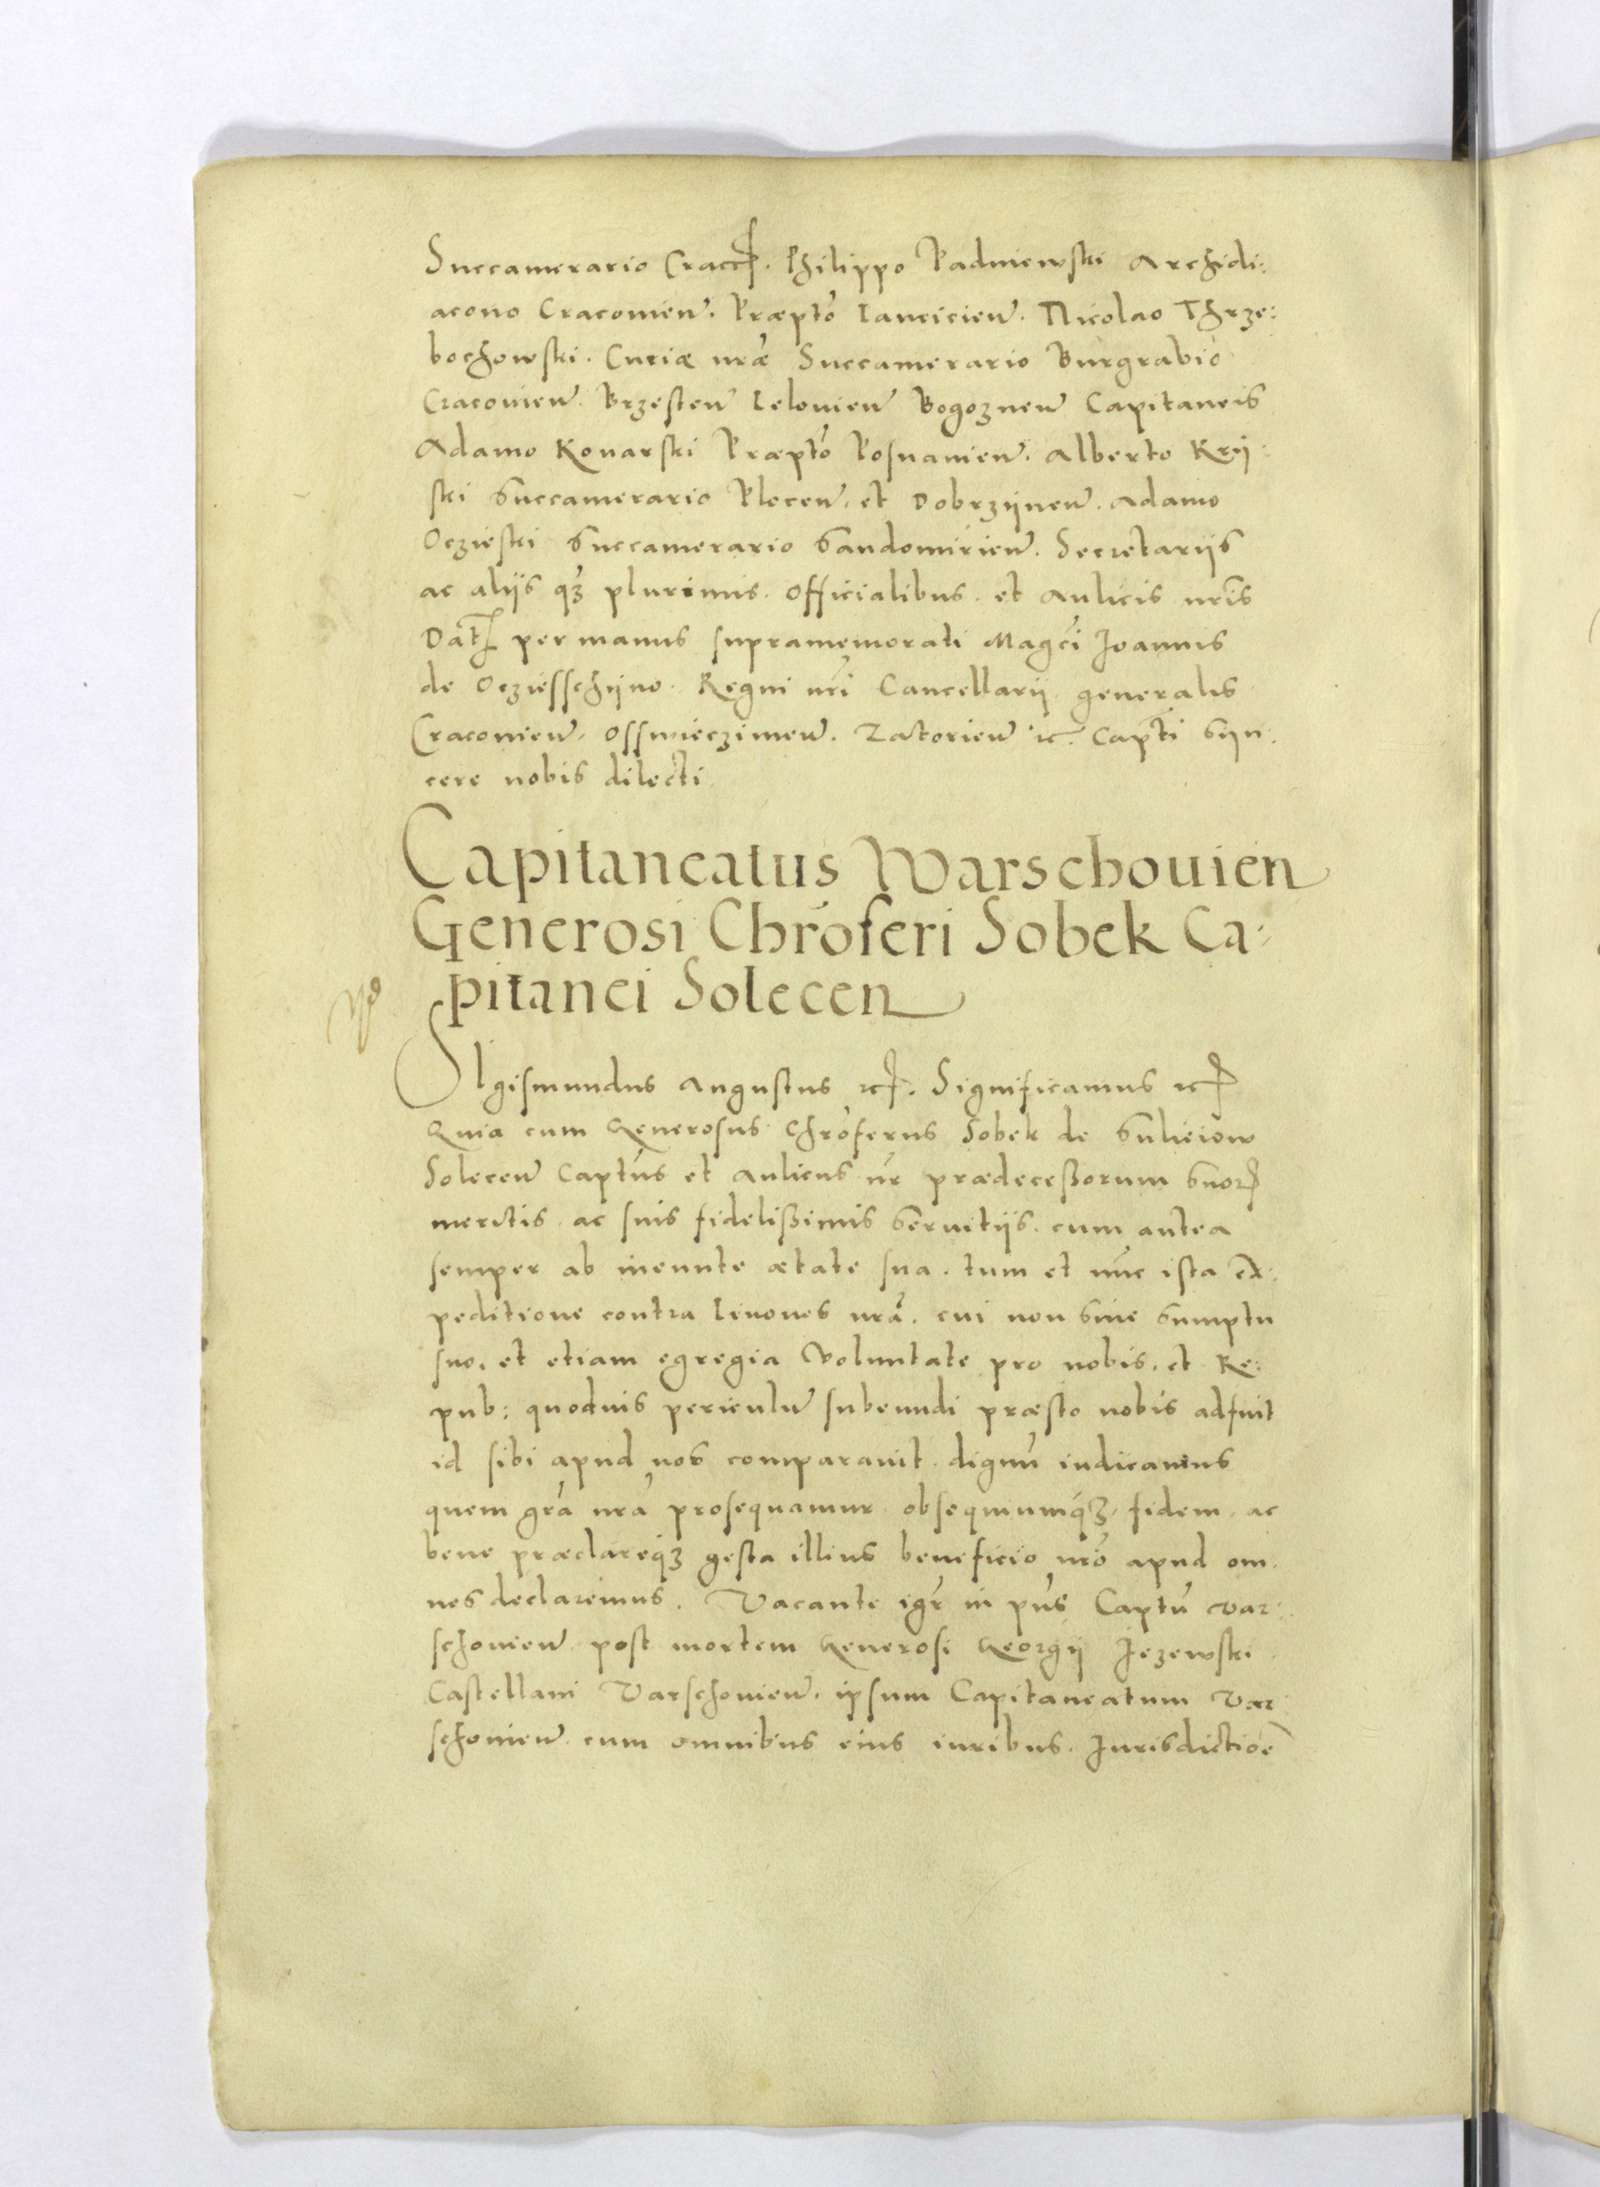 Succamerario Cracc. Philippo Padniewski Archidi:
acono Cracovien̄. Præptō Lancicien̄. Nicolao Thrze:
bochowski. Curiæ nr̄æ Succamerario Burgrabio
Cracovien̄. Brzesten̄ Lelovien̄ Rogoznen̄ Capitaneis
Adamo Konarski Præptō Posnanien̄. Alberto Krij:
ski Succamerario Plocen̄. et Dobrzijnen̄. Adamo
Oczieski Succamerario Sandomirien̄. Secretariis
ac aliis qȝ plurimis. Officialibus. et Aulicis nr̄is
Dat̄ per manus supramemorati Magc̄i Joannis
de Oczießchijno. Regni nr̄i Cancellarij generalis
Cracovien̄. Osswieczimen̄. Zatorien̄ ꝛc. Capt̄i Sijn.
cere nobis dilecti.
Capitaneatus Warschouien̄
Generosi Chrōferi Sobek Ca:
pitanei Solecen̄
SIgismundus Augustus ꝛc. Significamus ꝛc
Quia cum Generosus Chrōferus Sobek de Sulieiow
Solecen̄ Captūs et Aulicus nr̄ prædeceßorum Suoꝝ
meritis. ac suis fidelißimis Seruitijs. cum antea
semper ab ineunte ætate sua. tum et nūc ista ex:
peditione contra Liuones nr̄a. cui non sine sumptu
suo. et etiam egregia voluntate pro nobis. et Re:
pub: quoduis periculū subeundi præsto nobis adfuit
id sibi apud nos comparauit. dignū iudicamus
quem gr̄a nr̄a prosequamur. obsequiumqȝ. fidem. ac
bene præclareqȝ gesta illius beneficio nr̄o apud om.
nes declaremus. Vacante igr̄ in pn̄s Captū War:
schouien̄ post mortem Generosi Georgij Jezewski
Castellani Varschouien̄. ipsum Capitaneatum Var
schouien̄. cum omnibus eius iuribus. Jurisdictiōe